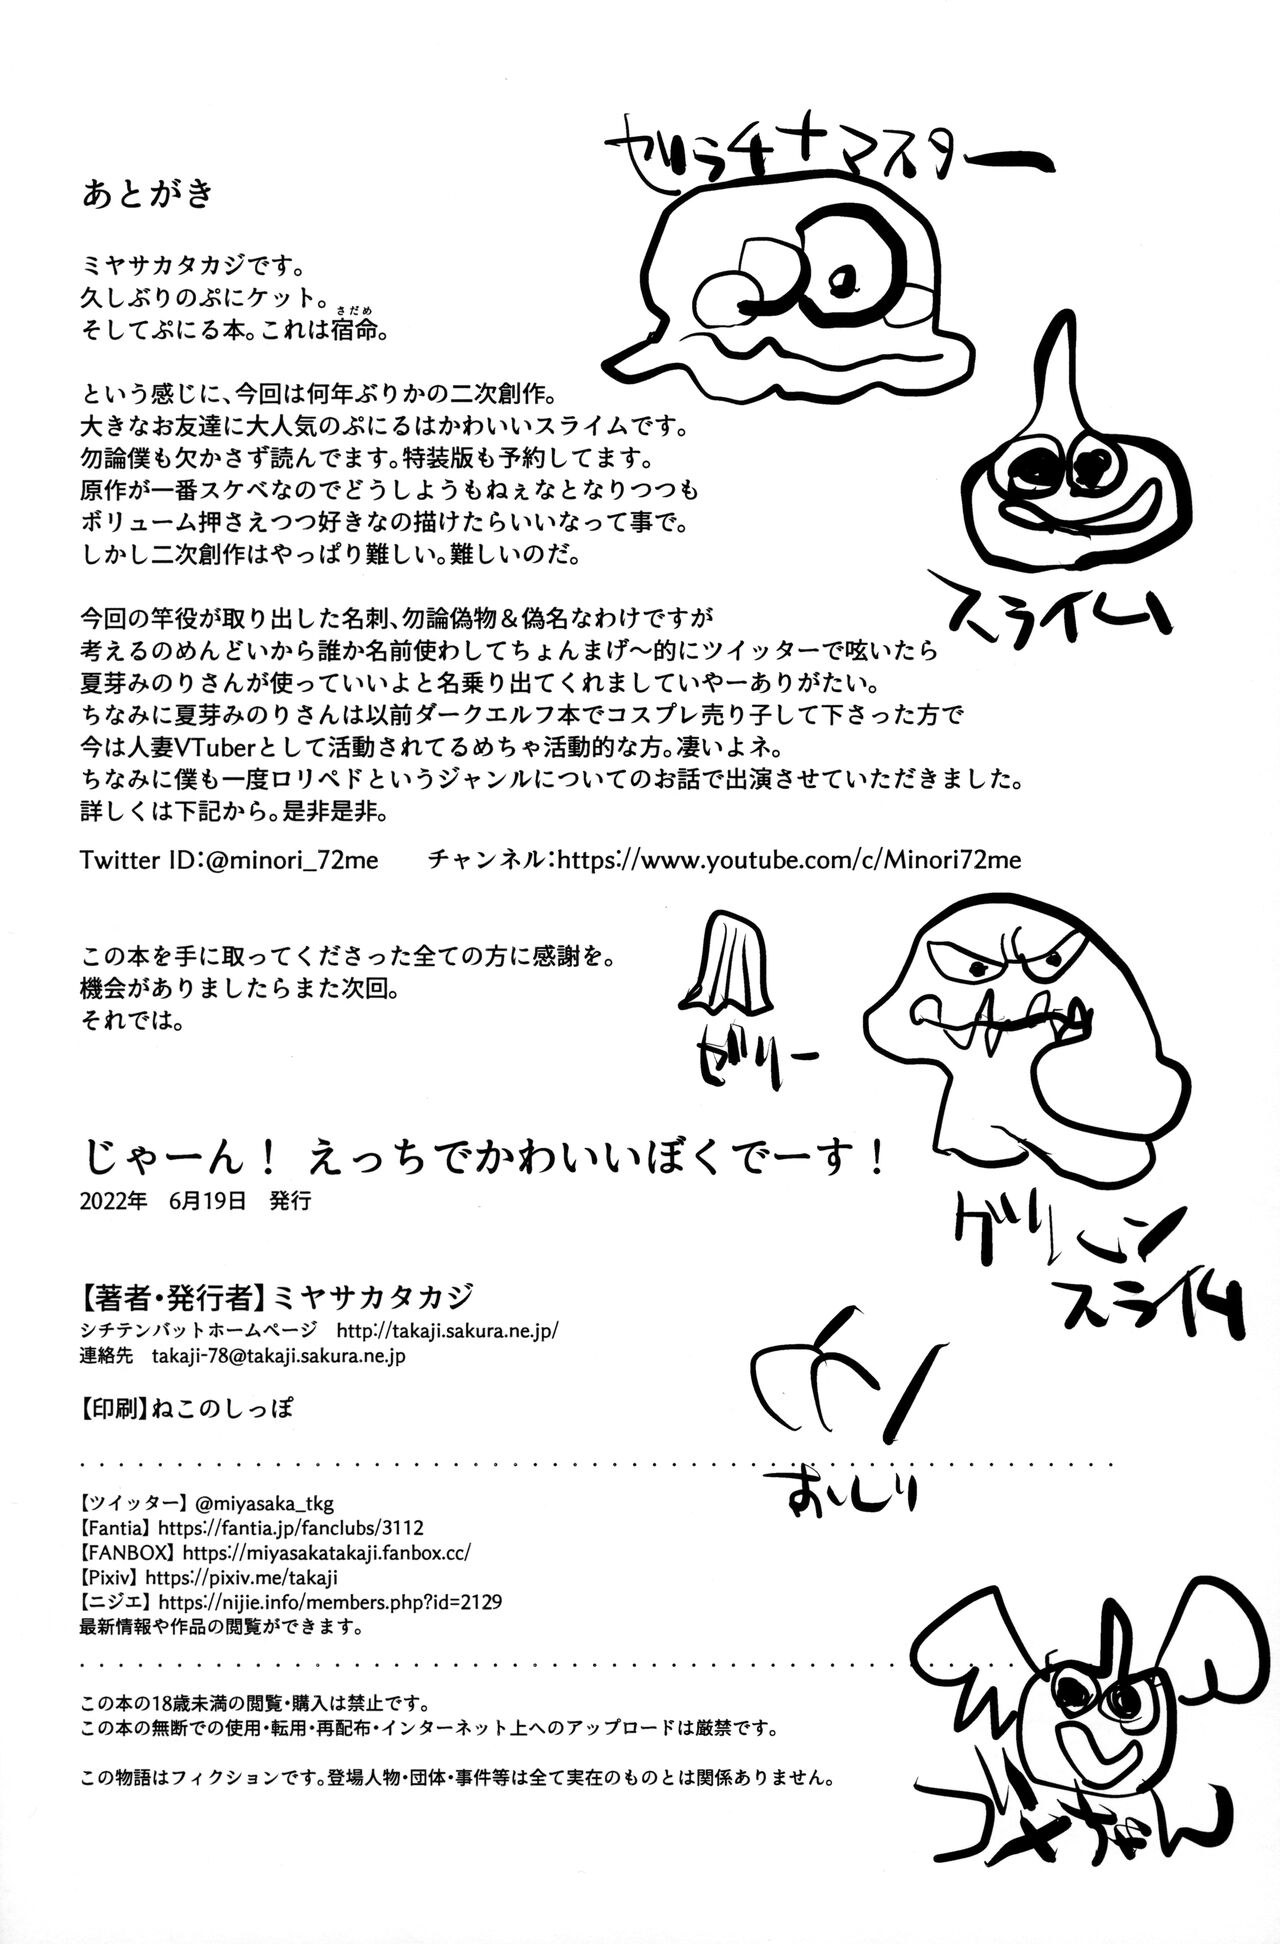 ゼリラチナマスター
あとがき
ミヤサカタカジです。
久しぶりのぷにケット。
さだめ
そしてぷにる本。これは宿命。
という感じに、今回は何年ぶりかの二次創作。
大きなお友達に大人気のぷにるはかわいいスライムです。
勿論僕も欠かさず読んでます。特装版も予約してます。
原作が一番スケベなのでどうしようもねぇなとなりつつも
ボリューム押さえつつ好きなの描けたらいいなって事で。
しかし二次創作はやっぱり難しい。難しいのだ。
スライム
今回の竿役が取り出した名刺、勿論偽物＆偽名なわけですが
考えるのめんどいから誰か名前使わしてちょんまげ～的にツイッターで呟いたら
夏芽みのりさんが使っていいよと名乗り出てくれましていやーありがたい。
ちなみに夏芽みのりさんは以前ダークエルフ本でコスプレ売り子して下さった方で
今は人妻VTuberとして活動されてるめちゃ活動的な方。凄いよネ。
ちなみに僕も一度ロリペドというジャンルについてのお話で出演させていただきました。
詳しくは下記から。是非是非。
Twitter ID：@minori_72me　チャンネル：https://www.youtube.com/c/Minori72me
この本を手に取ってくださった全ての方に感謝を。
機会がありましたらまた次回。
それでは。
ゼリー
じゃーん！ えっちでかわいいぼくでーす！
2022年　6月19日　発行
グリーン
スライム
【著者・発行者】ミヤサカタカジ
シチテンバットホームページ　http://takaji.sakura.ne.jp/
連絡先　takaji-78@takaji.sakura.ne.jp
【印刷】ねこのしっぽ
おしり
【ツイッター】@miyasaka_tkg
【Fantia】https://fantia.jp/fanclubs/3112
【FANBOX】https://miyasakatakaji.fanbox.cc/
【Pixiv】https://pixiv.me/takaji
【ニジエ】https://nijie.info/members.php?id=2129
最新情報や作品の閲覧ができます。
この本の18歳未満の閲覧・購入は禁止です。
この本の無断での使用・転用・再配布・インターネット上へのアップロードは厳禁です。
この物語はフィクションです。登場人物・団体・事件等は全て実在のものとは関係ありません。
ゴメちゃん